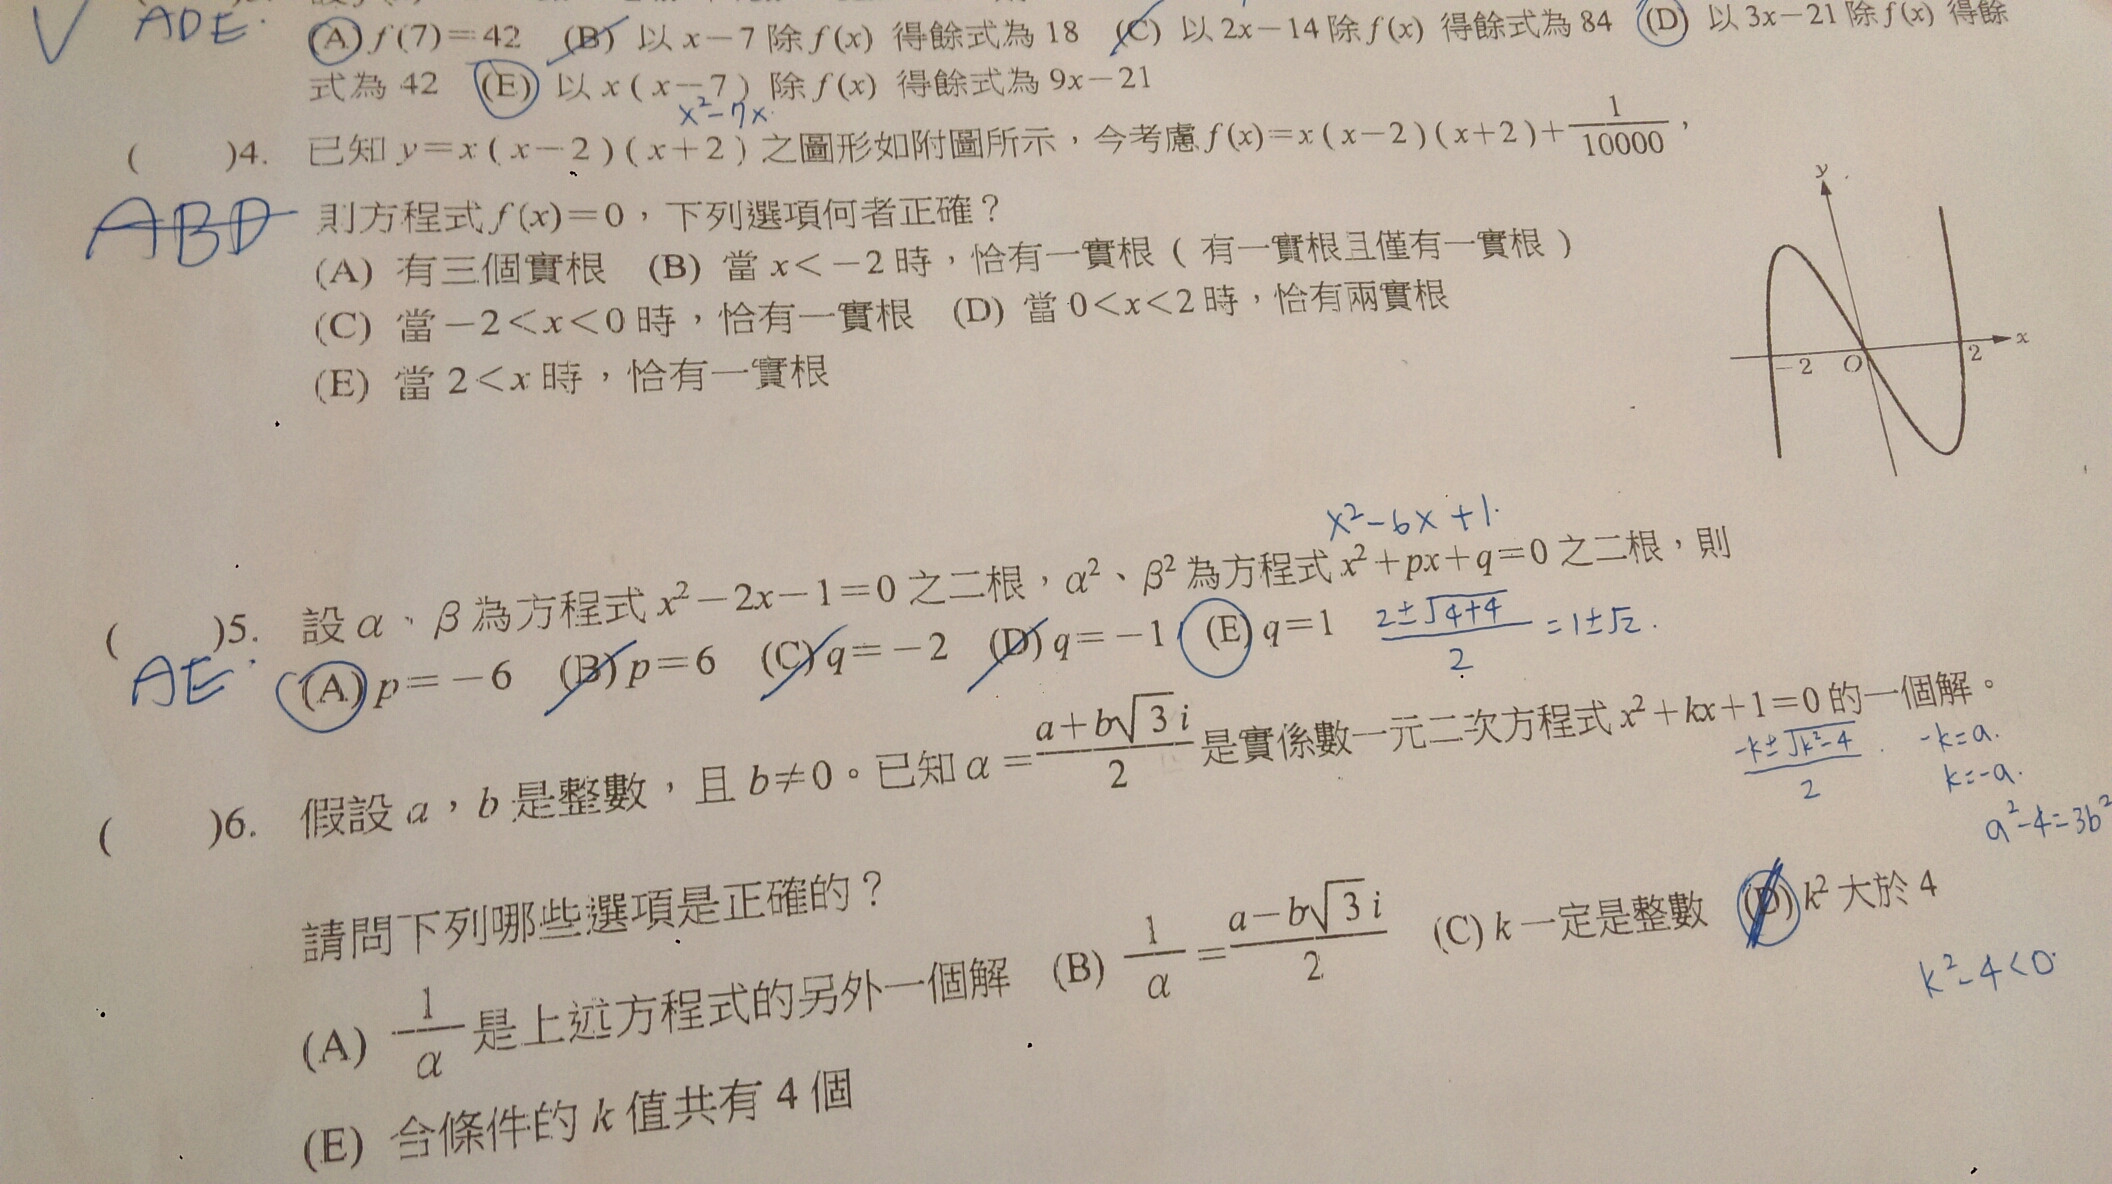 ADE.
(A) f(7)=42 (B) 以 x-7 除 f(x) 得餘式為 18 (C) 以 2x-14 除 f(x) 得餘式為 84 (D) 以 3x-21 除 f(x) 得餘
式為 42 (E) 以 x(x-7) 除 f(x) 得餘式為 9x-21
x²-7x.
( )4. 已知 y=x(x-2)(x+2) 之圖形如附圖所示，今考慮 f(x)=x(x-2)(x+2)+1/10000，
ABD 則方程式 f(x)=0，下列選項何者正確？
(A) 有三個實根 (B) 當 x<-2 時，恰有一實根（有一實根且僅有一實根）
(C) 當 -2<x<0 時，恰有一實根 (D) 當 0<x<2 時，恰有兩實根
(E) 當 2<x 時，恰有一實根
y
-2 O 2 x
x²-6x+1.
( )5. 設 α、β 為方程式 x²-2x-1=0 之二根，α²、β² 為方程式 x²+px+q=0 之二根，則
AE. (A) p=-6 (B) p=6 (C) q=-2 (D) q=-1 (E) q=1 (2±√(4+4))/2 =1±√2.
( )6. 假設 a，b 是整數，且 b≠0。已知 α=(a+b√3 i)/2 是實係數一元二次方程式 x²+kx+1=0 的一個解。
(-k±√(k²-4))/2. -k=a.
k=-a.
a²-4=3b²
請問下列哪些選項是正確的？
(A) 1/α 是上述方程式的另外一個解 (B) 1/α=(a-b√3 i)/2 (C) k 一定是整數 (D) k² 大於 4
k²-4<0.
(E) 合條件的 k 值共有 4 個